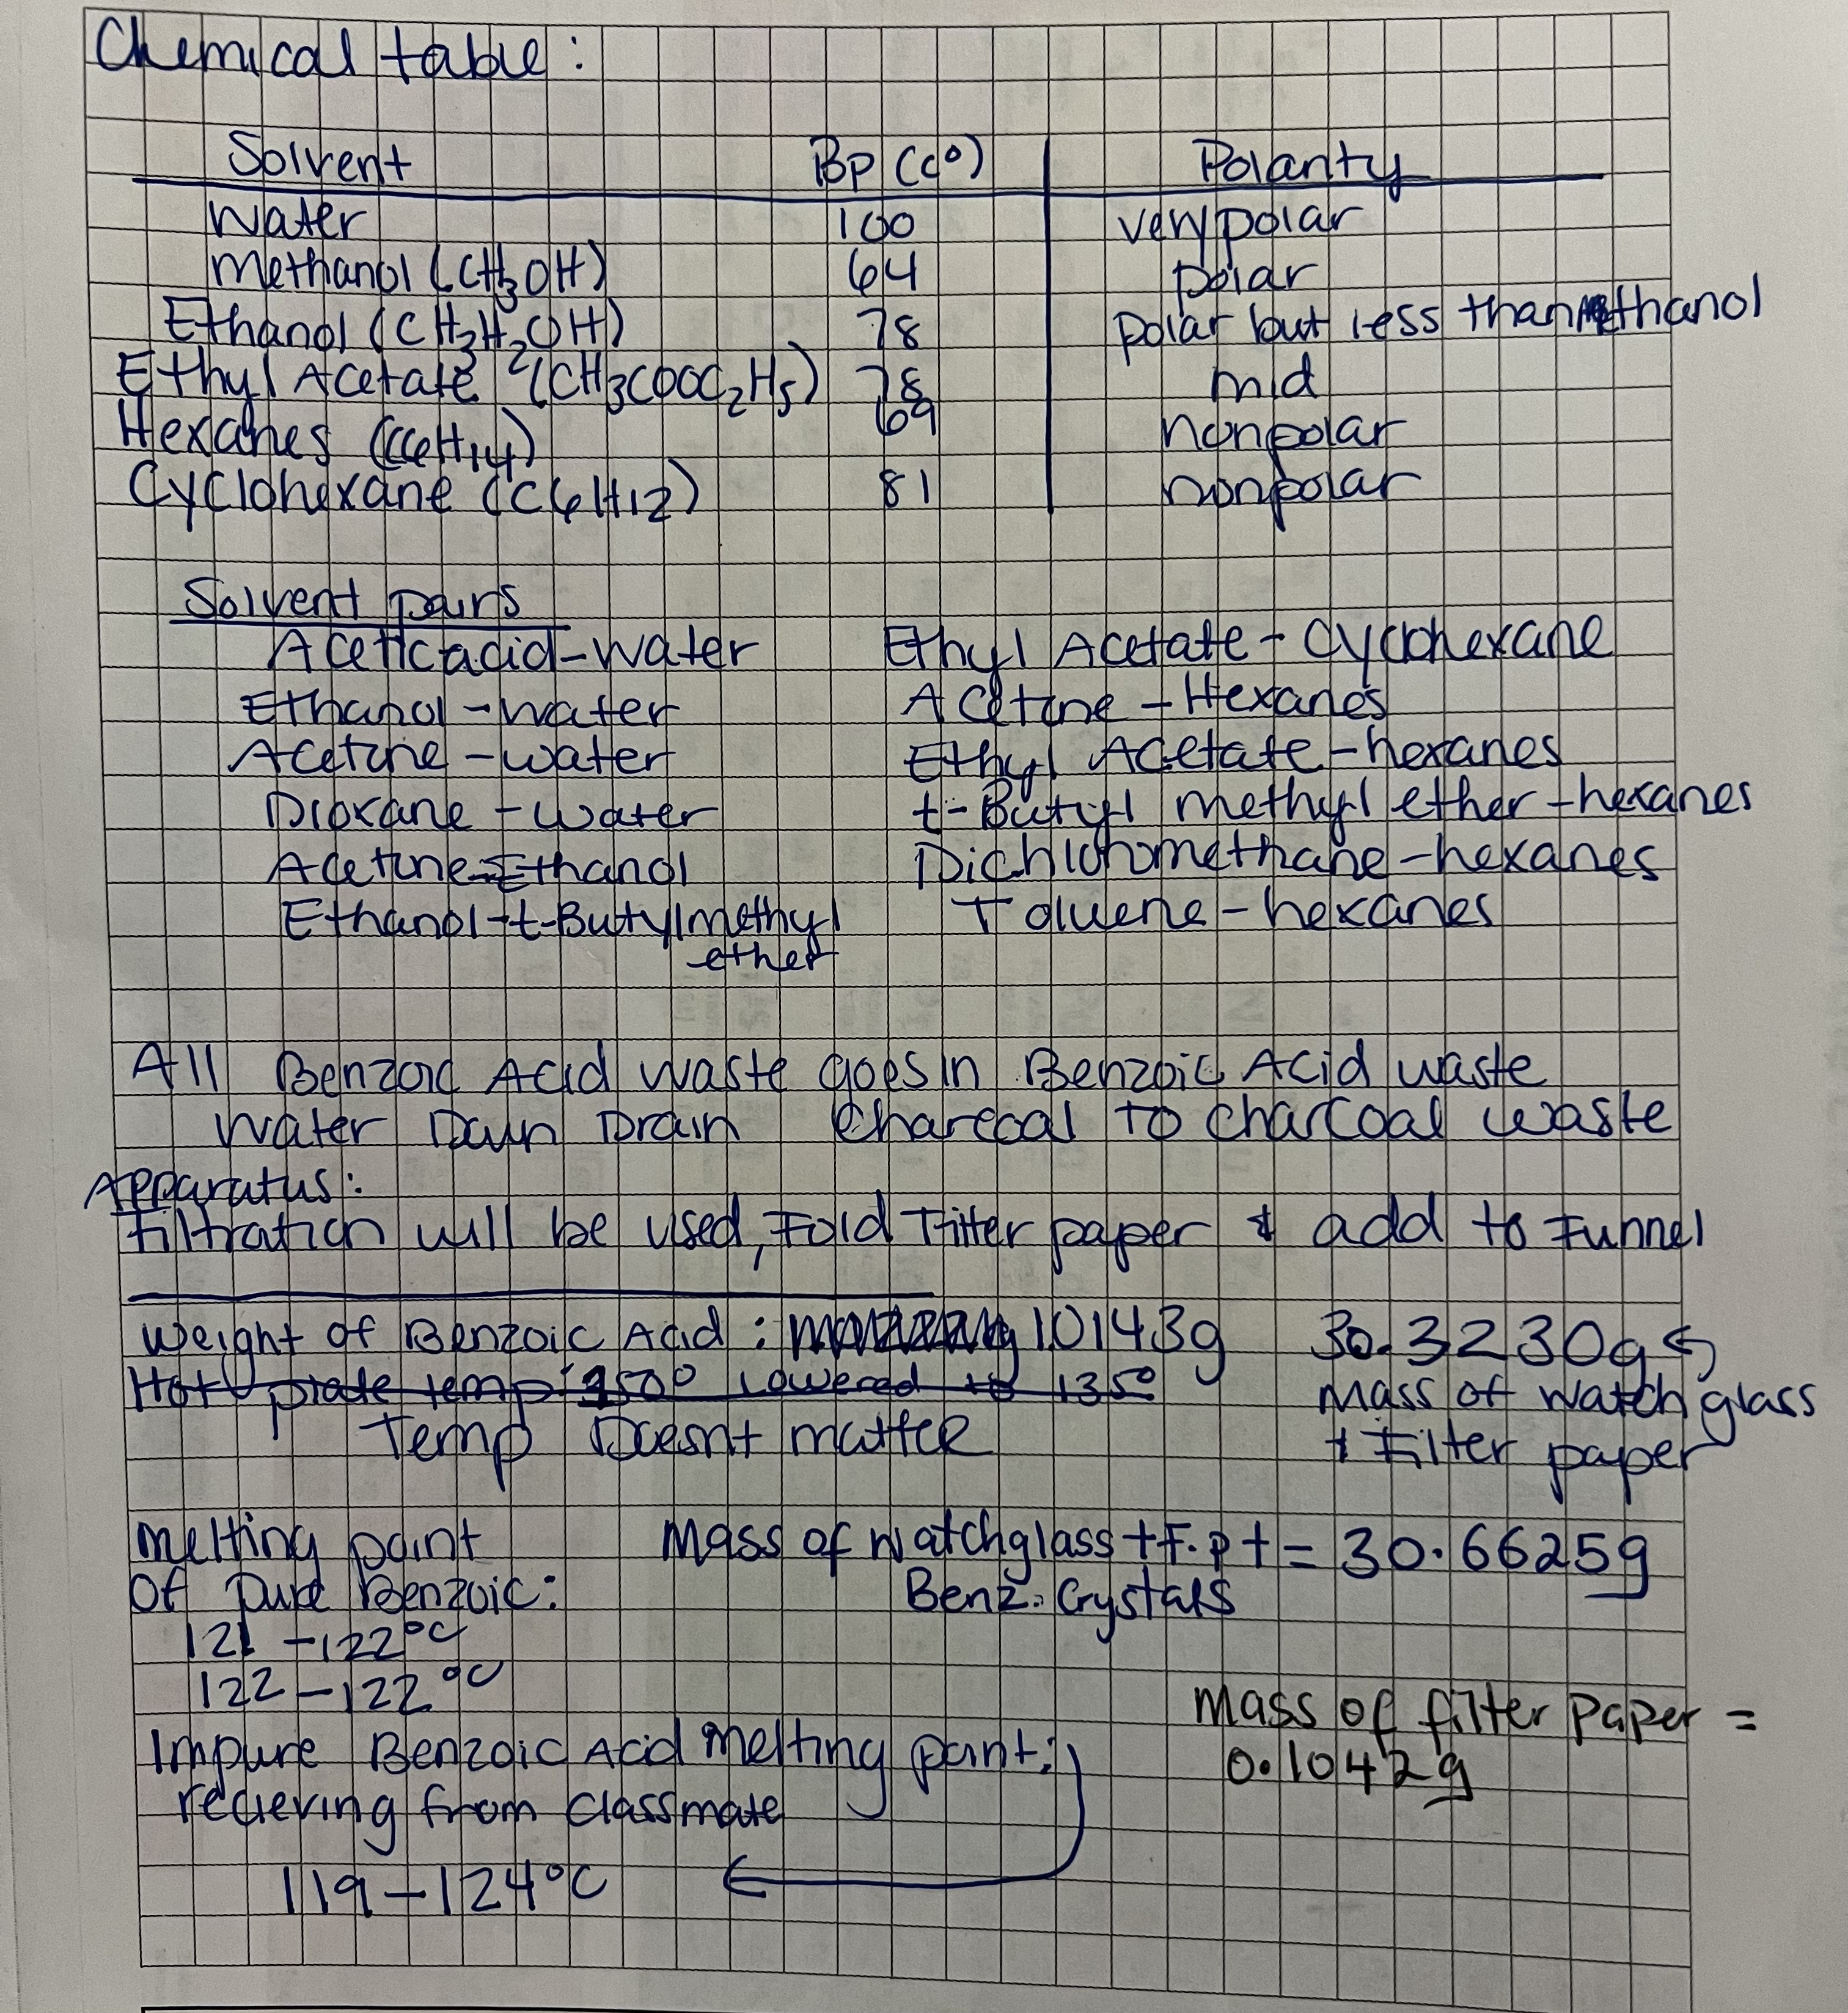 Chemical table:
Solvent Bp (c°) Polarity
Water 100 very polar
Methanol (CH3OH) 64 polar
Ethanol (CH3H2OH) 78 polar but less than Methanol
Ethyl Acetate (CH3COOC2H5) 78 mid
Hexanes (C6H14) 69 nonpolar
Cyclohexane (C6H12) 81 nonpolar
Solvent pairs
Acetic acid-water Ethyl Acetate - Cyclohexane
Ethanol-water Acetone - Hexanes
Acetone - water Ethyl Acetate - hexanes
Dioxane - water t-Butyl methyl ether - hexanes
Acetone-Ethanol Dichloromethane - hexanes
Ethanol-t-Butylmethyl Toluene - hexanes
ether
All Benzoic Acid waste goes in Benzoic Acid waste
Water Down Drain Charcoal to charcoal waste
Apparatus:
Filtration will be used, Fold Filter paper & add to Funnel
Weight of Benzoic Acid: 1.0143g 30.3230g
Hot plate temp 150° Lowered to 135° Mass of Watch glass
Temp Doesnt matter + Filter paper
Melting point Mass of watchglass + F.p + = 30.6625g
Of Pure Benzoic: Benz. Crystals
121 - 122°C
122 - 122°C
Mass of filter paper =
Impure Benzoic Acid Melting point:
0.1042g
recieving from classmate
119 - 124°C